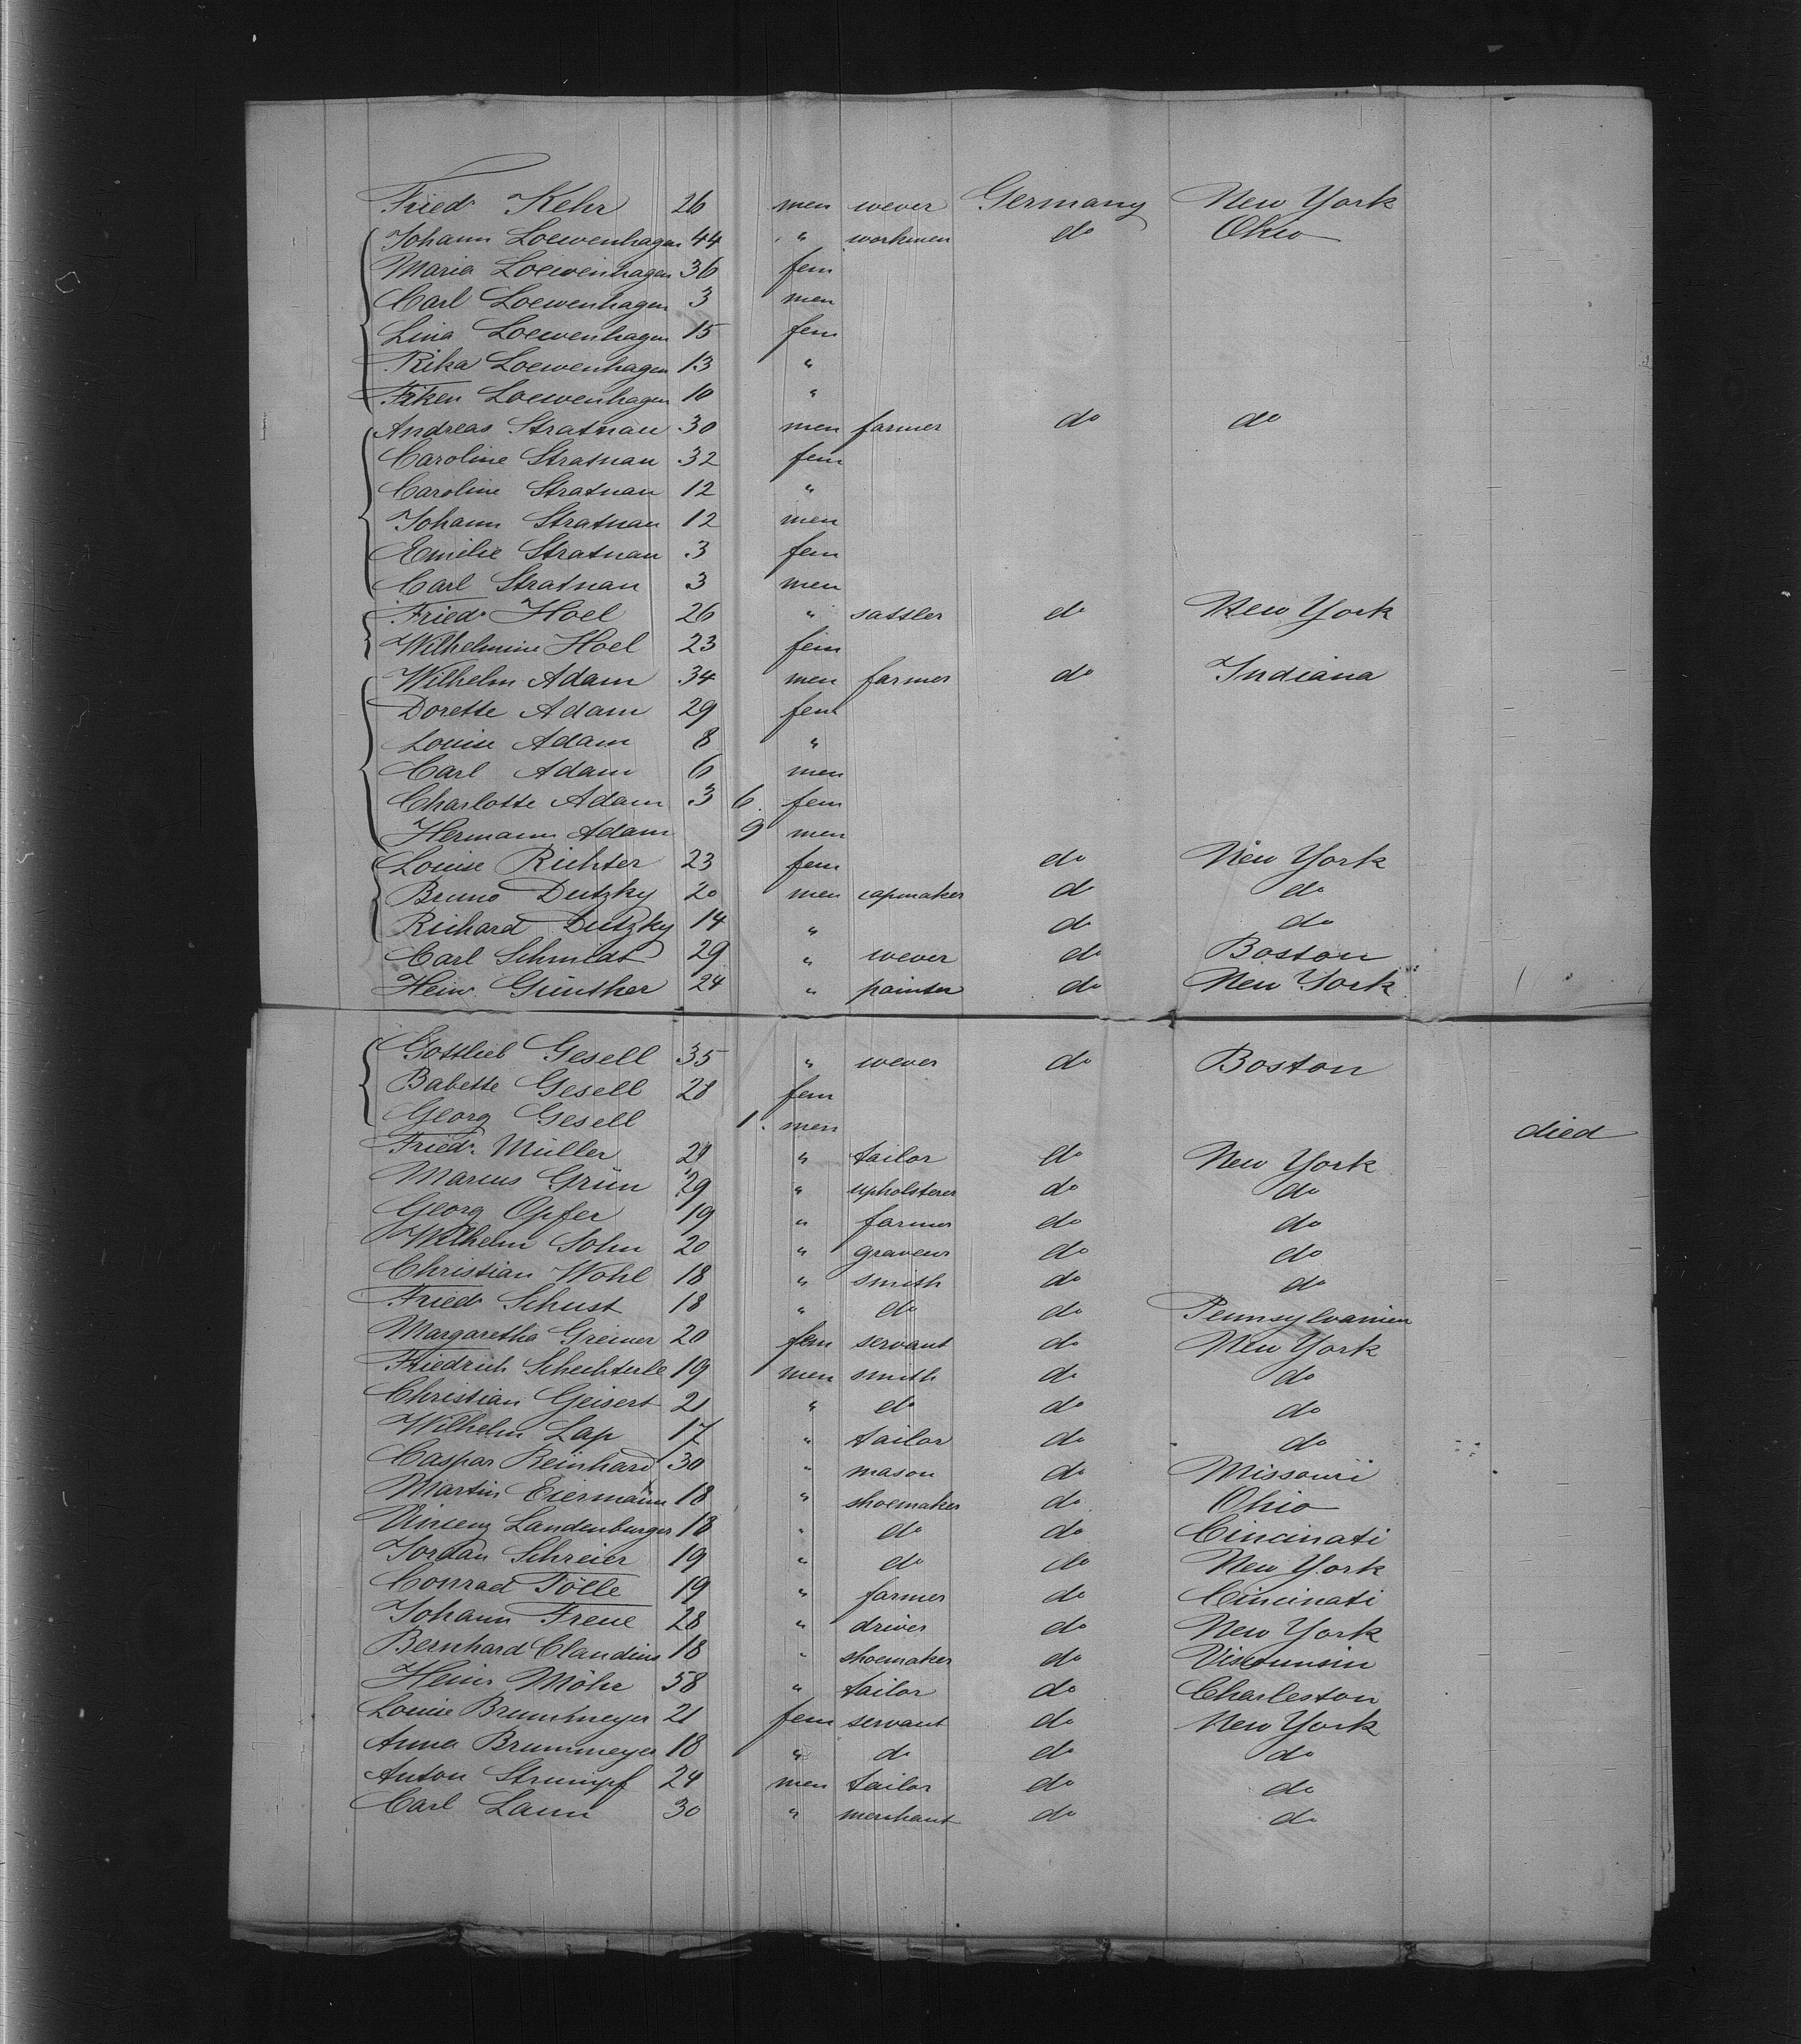 Friedr Kehr 26 men wever Germany New York
Johann Loewenhagen 44 " workmen do Ohio
Maria Loewenhagen 36 fem
Carl Loewenhagen 3 men
Lina Loewenhagen 15 fem
Rika Loewenhagen 13 "
Fiken Loewenhagen 10 "
Andreas Stratnau 30 men farmer do do
Caroline Stratnau 32 fem
Caroline Stratnau 12 "
Johann Stratnau 12 men
Emilie Stratnau 3 fem
Carl Stratnau 3 men
Friedr Hoel 26 " sattler do New York
Wilhelmine Hoel 23 fem
Wilhelm Adam 34 men farmer do Indiana
Dorette Adam 29 fem
Louise Adam 8 "
Carl Adam 6 men
Charlotte Adam 3 6. fem
Hermann Adam 9 men
Louise Richter 23 fem do New York
Bruno Dutzky 20 men capmaker do do
Richard Dutzky 14 " do do
Carl Schmidt 29 " wever do Boston
Heinr Günther 24 " painter do New York
Gottlieb Gesell 35 " wever do Boston
Babette Gesell 28 fem
Georg Gesell 1. men died
Friedr. Müller 29 " tailor do New York
Marcus Grün 29 " upholsterer do do
Georg Opfer 19 " farmer do do
Wilhelm Sohn 20 " graveur do do
Christian Wohl 18 " smith do do
Friedr Schust 18 " do do Pennsylvanien
Margaretha Greiner 20 fem servant do New York
Friedrich Schechterle 19 men smith do do
Christian Geisert 21 " do do do
Wilhelm Lap 17 " tailor do do
Caspar Reinhard 30 " mason do Missouri
Martin Eiermann 18 " shoemaker do Ohio
Vincenz Landenburger 18 " do do Cincinati
Jordan Schreier 19 " do do New York
Conrad Tölle 19 " farmer do Cincinati
Johann Frene 28 " driver do New York
Bernhard Claudius 18 " shoemaker do Visconsin
Heinr Möhr 58 " tailor do Charleston
Louise Brummeyer 21 fem servant do New York
Anna Brummeyer 18 " do do do
Anton Strumpf 24 men tailor do do
Carl Laun 30 " merchant do do